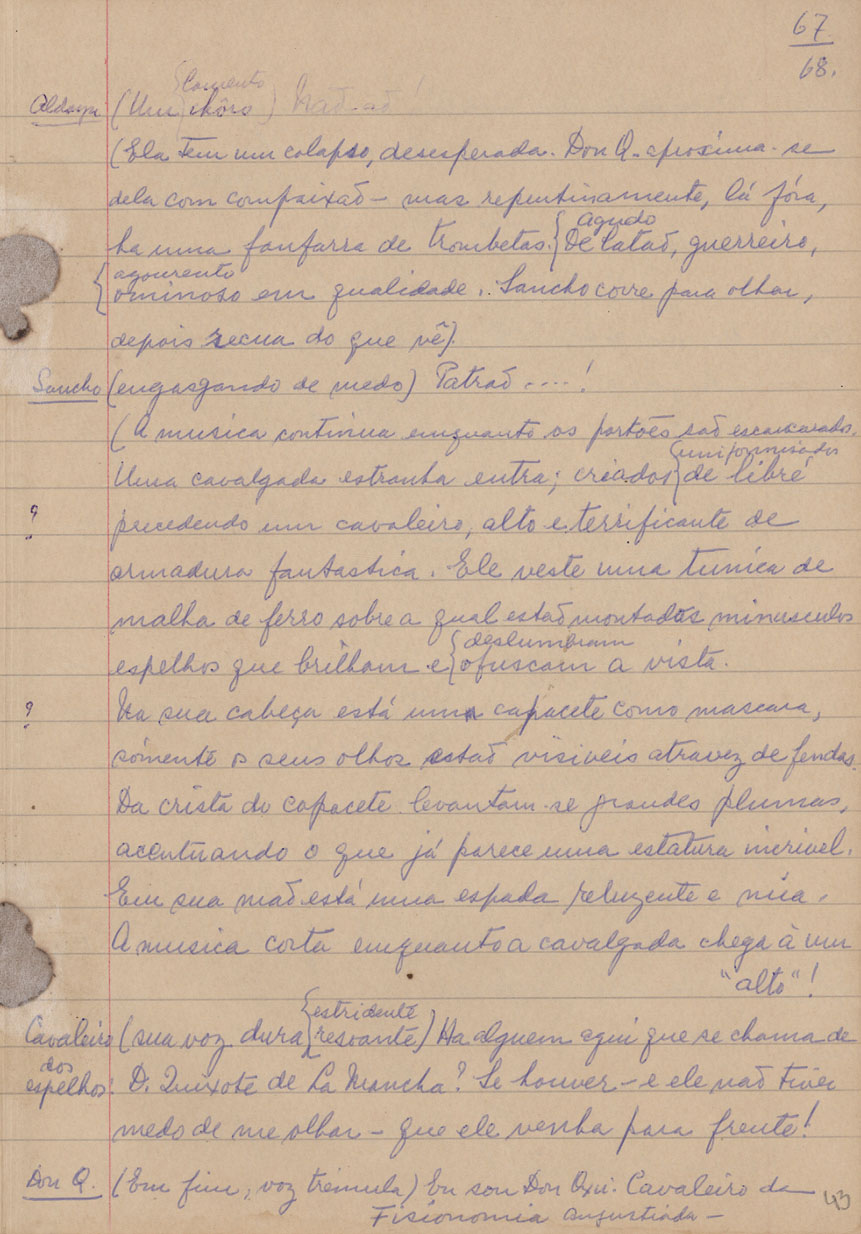 67
68.
{lamento
Aldonza (Um {chôro) Naõ-aõ!
(Ela tem um colapso, desesperada. Don Q. aproxima-se
dela com compaixaõ – mas repentinamente, lá fóra,
{agudo
ha uma fanfarra de trombetas. {De lataõ, guerreiro,
{agourento
ominoso em qualidade. Sancho corre para olhar,
depois recua do que vê).
Sancho (engasgando de medo) Patraõ ....!
(A musica continua emquanto os portões saõ escancarados.
{uniformisados
Uma cavalgada estranha entra; criados {de libré
? precedendo um cavaleiro, alto e terrificante de
armadura fantastica. Ele veste uma tunica de
malha de ferro sobre a qual estaõ montados minusculos
{deslumbram
espelhos que brilham e {ofuscam a vista.
? Na sua cabeça está um capacete como mascara,
sómente os seus olhos estaõ visiveis atravez de fendas.
Da crista do capacete levantam-se grandes plumas,
acentuando o que já parece uma estatura incrivel.
Em sua maõ está uma espada reluzente e núa.
A musica corta emquanto a cavalgada chega à um
"alto"!
{estridente
Cavaleiro (sua voz dura {ressoante) Ha alguem aqui que se chama de
dos
espelhos: D. Quixote de La Mancha? Se houver – e ele naõ tiver
medo de me olhar – que ele venha para frente!
Don Q. (Em fim, voz trémula) Eu sou Don Qxi. Cavaleiro da
Fisionomia angustiada –
43